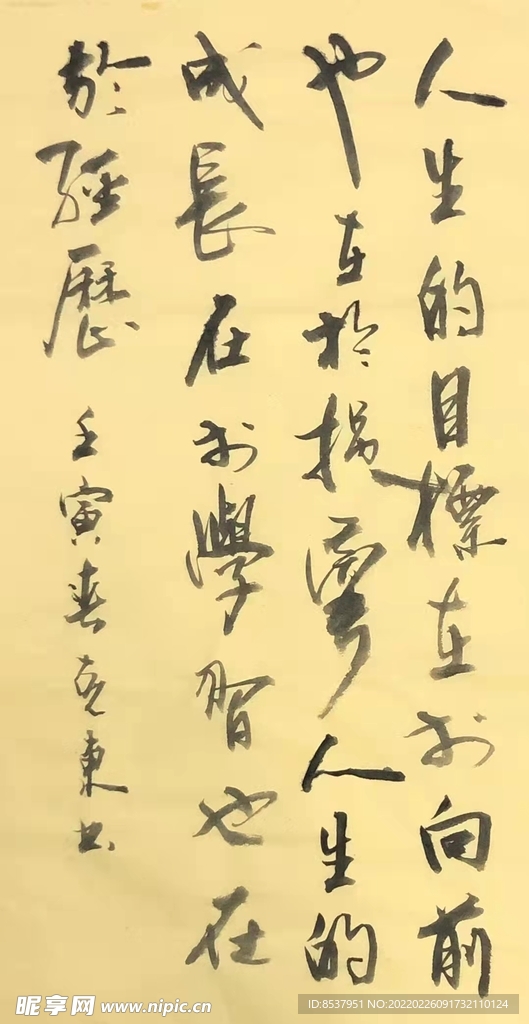 人生的目標在於向前
也在於拐彎人生的
成長在於學習也在
於經歷 壬寅春克東书
昵享网 www.nipic.cn
ID:8537951 NO:20220226091732110124